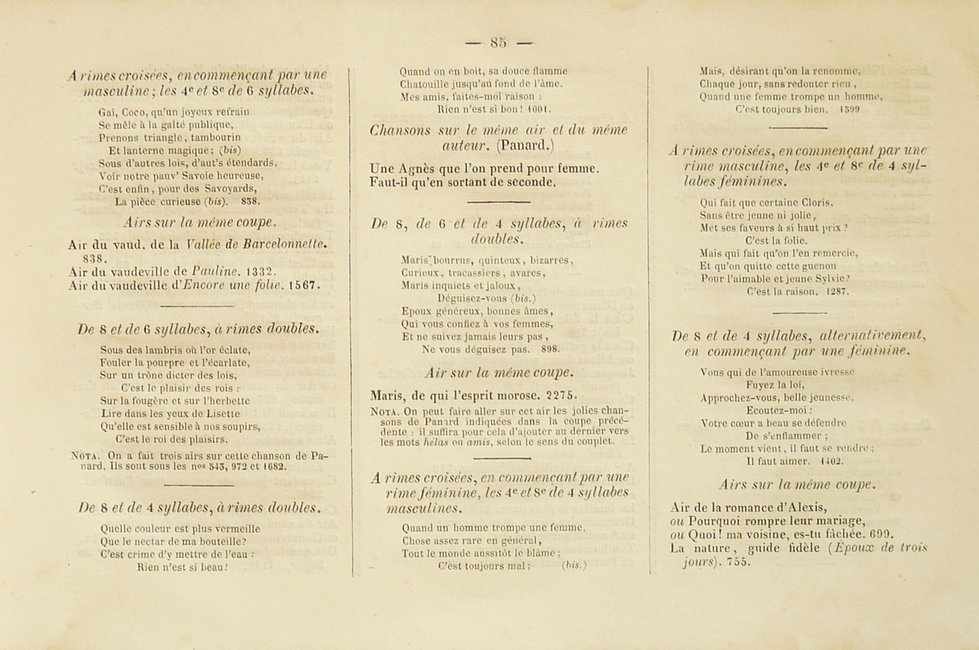 — 85 —
A rimes croisées, en commençant par une
masculine ; les 4e et 8e de 6 syllabes.
Gai, Coco, qu'un joyeux refrain
Se mêle à la gaîté publique,
Prenons triangle, tambourin
Et lanterne magique ; (bis)
Sous d'autres lois, d'aut's étendards,
Voir notre pauv' Savoie heureuse,
C'est enfin, pour des Savoyards,
La pièce curieuse (bis). 838.
Airs sur la même coupe.
Air du vaud. de la Vallée de Barcelonnette.
838.
Air du vaudeville de Pauline. 1332.
Air du vaudeville d'Encore une folie. 1567.
De 8 et de 6 syllabes, à rimes doubles.
Sous des lambris où l'or éclate,
Fouler la pourpre et l'écarlate,
Sur un trône dicter des lois,
C'est le plaisir des rois :
Sur la fougère et sur l'herbette
Lire dans les yeux de Lisette
Qu'elle est sensible à nos soupirs,
C'est le roi des plaisirs.
NOTA. On a fait trois airs sur cette chanson de Pa-
nard. Ils sont sous les nos 543, 972 et 1682.
De 8 et de 4 syllabes, à rimes doubles.
Quelle couleur est plus vermeille
Que le nectar de ma bouteille?
C'est crime d'y mettre de l'eau :
Rien n'est si beau!
Quand on en boit, sa douce flamme
Chatouille jusqu'au fond de l'âme.
Mes amis, faites-moi raison :
Rien n'est si bon! 1001.
Chansons sur le même air et du même
auteur. (Panard.)
Une Agnès que l'on prend pour femme.
Faut-il qu'en sortant de seconde.
De 8, de 6 et de 4 syllabes, à rimes
doubles.
Maris bourrus, quinteux, bizarres,
Curieux, tracassiers, avares,
Maris inquiets et jaloux,
Déguisez-vous (bis.)
Epoux généreux, bonnes âmes,
Qui vous confiez à vos femmes,
Et ne suivez jamais leurs pas,
Ne vous déguisez pas. 898.
Air sur la même coupe.
Maris, de qui l'esprit morose. 2275.
NOTA. On peut faire aller sur cet air les jolies chan-
sons de Panard indiquées dans la coupe précé-
dente : il suffira pour cela d'ajouter au dernier vers
les mots hélas ou amis, selon le sens du couplet.
A rimes croisées, en commençant par une
rime féminine, les 4e et 8e de 4 syllabes
masculines.
Quand un homme trompe une femme,
Chose assez rare en général,
Tout le monde aussitôt le blâme ;
C'est toujours mal ; (bis.)
Mais, désirant qu'on la renomme,
Chaque jour, sans redouter rien,
Quand une femme trompe un homme,
C'est toujours bien. 1599
A rimes croisées, en commençant par une
rime masculine, les 4e et 8e de 4 syl-
labes féminines.
Qui fait que certaine Cloris,
Sans être jeune ni jolie,
Met ses faveurs à si haut prix?
C'est la folie.
Mais qui fait qu'on l'en remercie,
Et qu'on quitte cette guenon
Pour l'aimable et jeune Sylvie?
C'est la raison. 1287.
De 8 et de 4 syllabes, alternativement,
en commençant par une féminine.
Vous qui de l'amoureuse ivresse
Fuyez la loi,
Approchez-vous, belle jeunesse,
Ecoutez-moi :
Votre cœur a beau se défendre
De s'enflammer ;
Le moment vient, il faut se rendre ;
Il faut aimer. 1402.
Airs sur la même coupe.
Air de la romance d'Alexis,
ou Pourquoi rompre leur mariage,
ou Quoi! ma voisine, es-tu fâchée. 699.
La nature, guide fidèle (Epoux de trois
jours). 755.